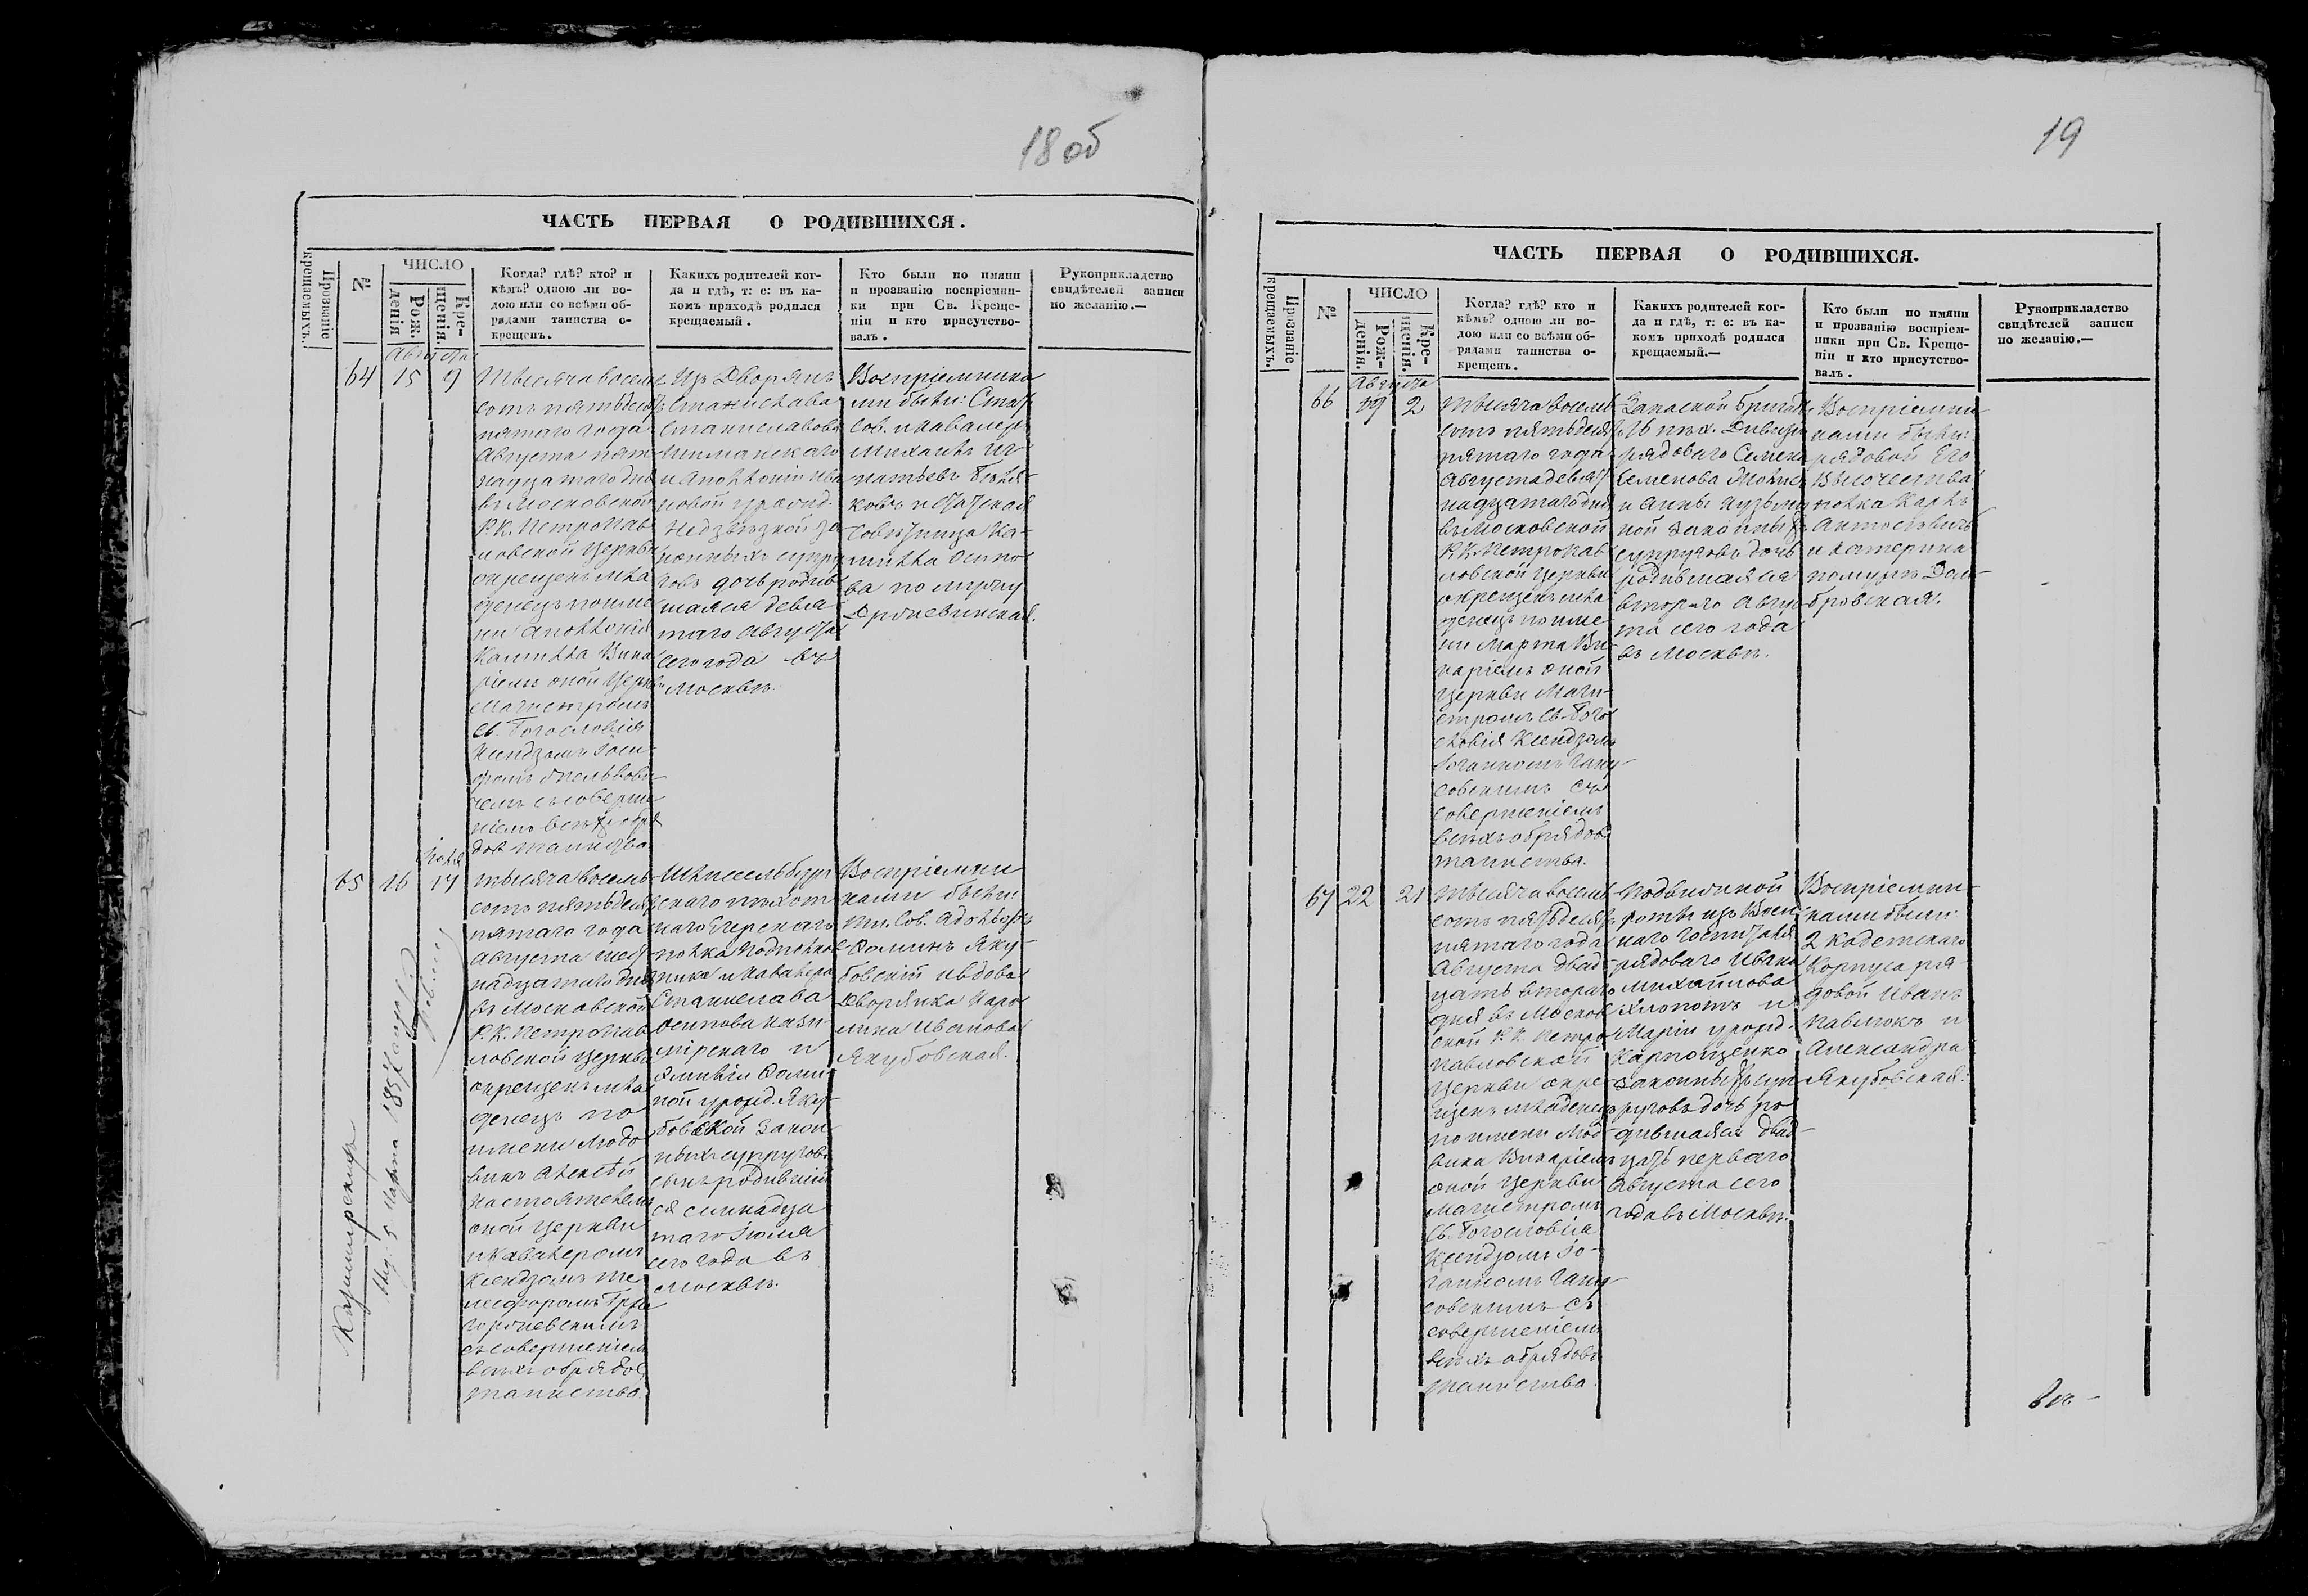 18 об
ЧАСТЬ ПЕРВАЯ О РОДИВШИХСЯ.
Прозваніе крещаемыхъ.
№
ЧИСЛО
Рож-
денія
Кре-
щенія.
Когда? гдѣ? кто? и
кѣмъ? одною ли во-
дою или со всѣми об-
рядами таинства о-
крещенъ.
Какихъ родителей ког-
да и гдѣ, т: е: въ ка-
комъ приходѣ родился
крещаемый.
Кто были по имяни
и прозванію воспріемни-
ки при Св. Креще-
ніи и кто присутство-
валъ.
Рукоприкладство
свидѣтелей записи
по желанію.—
Августа
64 15 9
Тысяча восемь
сотъ пятьдесятъ
пятаго года
Августа пят
надцатаго дня
въ Московской
Р.К. Петропав
ловской Церкви
окрещенъ мла
денецъ по име
ни Аполлонія
Камилла Вика
ріемъ оной Церкви
Магистромъ
Св. Богословія
Ксендзомъ Іоси
фомъ
чемъ съ соверше
ніемъ всѣхъ обря
довъ таинства
Изъ Дворянъ
Станислава
Станиславова
Шиманскаго
и Аполлоніи Ива
новой урожд.
Недзвѣдзкой за
конныхъ супру
говъ дочь родив
шаяся девя
таго Августа
сего года въ
Москвѣ.
Воспріемника
ми были: Стат
Сов. и Кавалеръ
Михаилъ Иг
натьевъ Бѣля-
ковъ и Статская
Совѣтница Ка-
милла Осипо
ва по мужу
Дрневинская.
Іюля
65 16 17
Казимирскій
Тысяча восемь
сотъ пятьдесятъ
пятаго года
Августа шест
надцатаго дня
въ Московской
Р.К. Петропав
ловской Церкви
окрещенъ мла
денецъ по
имени Людо
викъ Алексѣй
Настоятелемъ
оной Церкви
и Кавалеромъ
Ксендзомъ Те
лесфоромъ
съ совершеніемъ
всѣхъ обрядовъ
таинства.
Шлиссельбург
скаго пѣхот
наго Егерскаго
полка Подполков
ника и Кавалера
Станислава
Осипова Кази-
мірскаго и
Эмиліи Фоми-
ной урожд. Яку-
бовской закон
ныхъ супруговъ
сынъ родившій
ся семнадца
таго Іюля
сего года въ
Москвѣ.
Воспріемни
ками были:
Тит. Сов. Адольфъ
Фоминъ Яку-
бовскій и вдова
Дворянка Каро
лина Иванова
Якубовская.
19
ЧАСТЬ ПЕРВАЯ О РОДИВШИХСЯ.
Прозваніе крещаемыхъ.
№
ЧИСЛО
Рож-
денія.
Кре-
щенія.
Когда? гдѣ? кто и
кѣмъ? одною ли во-
дою или со всѣми об-
рядами таинства о-
крещенъ.
Какихъ родителей ког-
да и гдѣ, т: е: въ ка-
комъ приходѣ родился
крещаемый.—
Кто были по имяни
и прозванію воспріем-
ники при Св. Креще-
ніи и кто присутство-
валъ.
Рукоприкладство
свидѣтелей записи
по желанію.—
Августа
66 19 2
Тысяча восемь
сотъ пятьдесятъ
пятаго года
Августа девят
надцатаго дня
въ Московской
Р.К. Петропав
ловской Церкви
окрещенъ мла
денецъ по име
ни Марта Ви-
каріемъ оной
Церкви Маги-
стромъ Св. Бого
словія Ксендзомъ
Іоганномъ Гану-
совскимъ съ
совершеніемъ
всѣхъ обрядовъ
таинства.
Запасной бригады
16 пѣх. Дивизіи
рядоваго Семена
Семенова
и Анны Кузьми
ной законныхъ
супруговъ дочь
родившаяся
втораго Авгус
та сего года
въ Москвѣ.
Воспріемни-
ками были:
рядовой Его
Высочества
полка Карлъ
Антосевичъ
и Катерина
по мужѣ Дом-
бровская.
67 22 21
Тысяча восемь
сотъ пятьдесятъ
пятаго года
Августа двад
цать втораго
дня въ Москов
ской Р.К. Петро
павловской
Церкви окре
щенъ младенецъ
по имени Люд
вика Викаріемъ
оной Церкви
Магистромъ
Св. Богословія
Ксендзомъ Іо-
ганномъ Гану-
совскимъ съ
совершеніемъ
всѣхъ обрядовъ
таинства.
Подвижной
роты изъ Воен
наго Госпиталя
рядоваго Ивана
Михайлова
Хлопотъ и
Маріи урожд.
Карпощенко
законныхъ суп
руговъ дочь ро
дившаяся двад-
цать перваго
Августа сего
года въ Москвѣ.
Воспріемни-
ками были:
2 Кадетскаго
Корпуса ря-
довой Иванъ
Павлюкъ и
Александра
Якубовская.